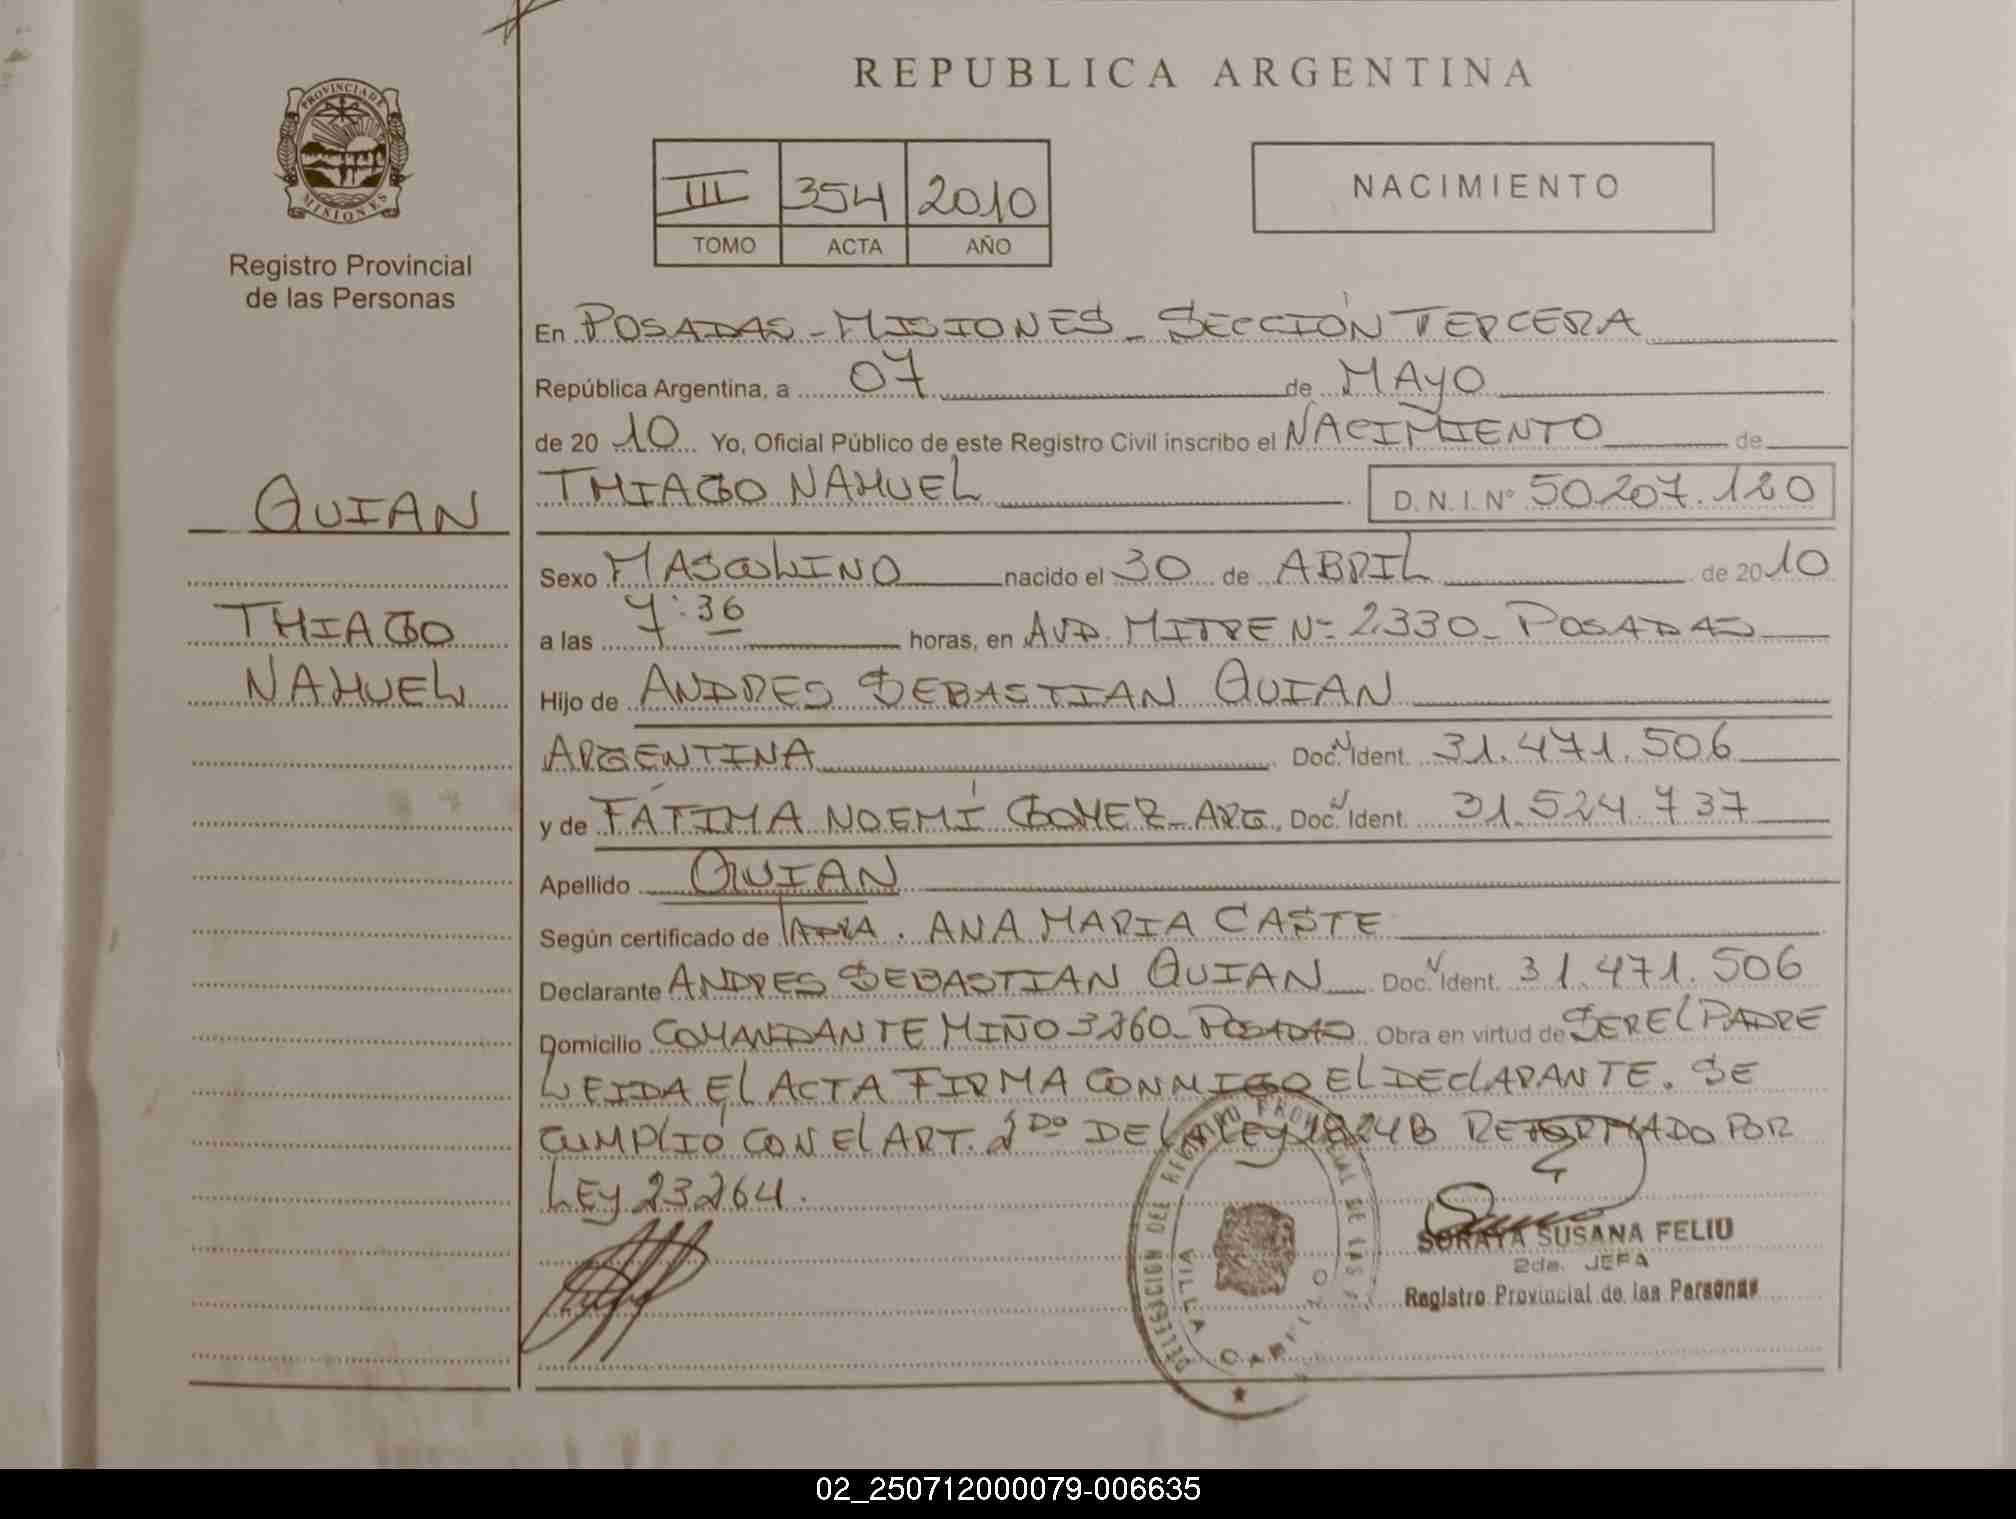 REPUBLICA ARGENTINA
PROVINCIA DE MISIONES
Registro Provincial
de las Personas
III 354 2010
TOMO ACTA AÑO
NACIMIENTO
En POSADAS - MISIONES - SECCIÓN TERCERA
República Argentina, a 07 de MAYO
de 20 10 Yo, Oficial Público de este Registro Civil inscribo el NACIMIENTO de
THIAGO NAHUEL D.N.I. Nº 50.207.120
QUIAN
THIAGO
NAHUEL
Sexo MASCULINO nacido el 30 de ABRIL de 2010
a las 7:36 horas, en AVD. MITRE Nº 2330 - POSADAS
Hijo de ANDRES SEBASTIAN QUIAN
ARGENTINA Doc. Ident. 31.471.506
y de FÁTIMA NOEMÍ GOMEZ - ARG. Doc. Ident. 31.524.737
Apellido QUIAN
Según certificado de ANA MARIA CASTE
Declarante ANDRES SEBASTIAN QUIAN Doc. Ident. 31.471.506
Domicilio COMANDANTE MIÑO 3260 - POSADAS Obra en virtud de SER EL PADRE
LEIDA EL ACTA FIRMA CONMIGO EL DECLARANTE. SE
CUMPLIÓ CON EL ART. 2DO DE LA LEY 18248 REFORMADO POR
LEY 23264.
DELEGACION DEL REGISTRO PROVINCIAL DE LAS
VILLA CABELLO
SORAYA SUSANA FELIU
2da. JEFA
Registro Provincial de las Personas
02_250712000079-006635